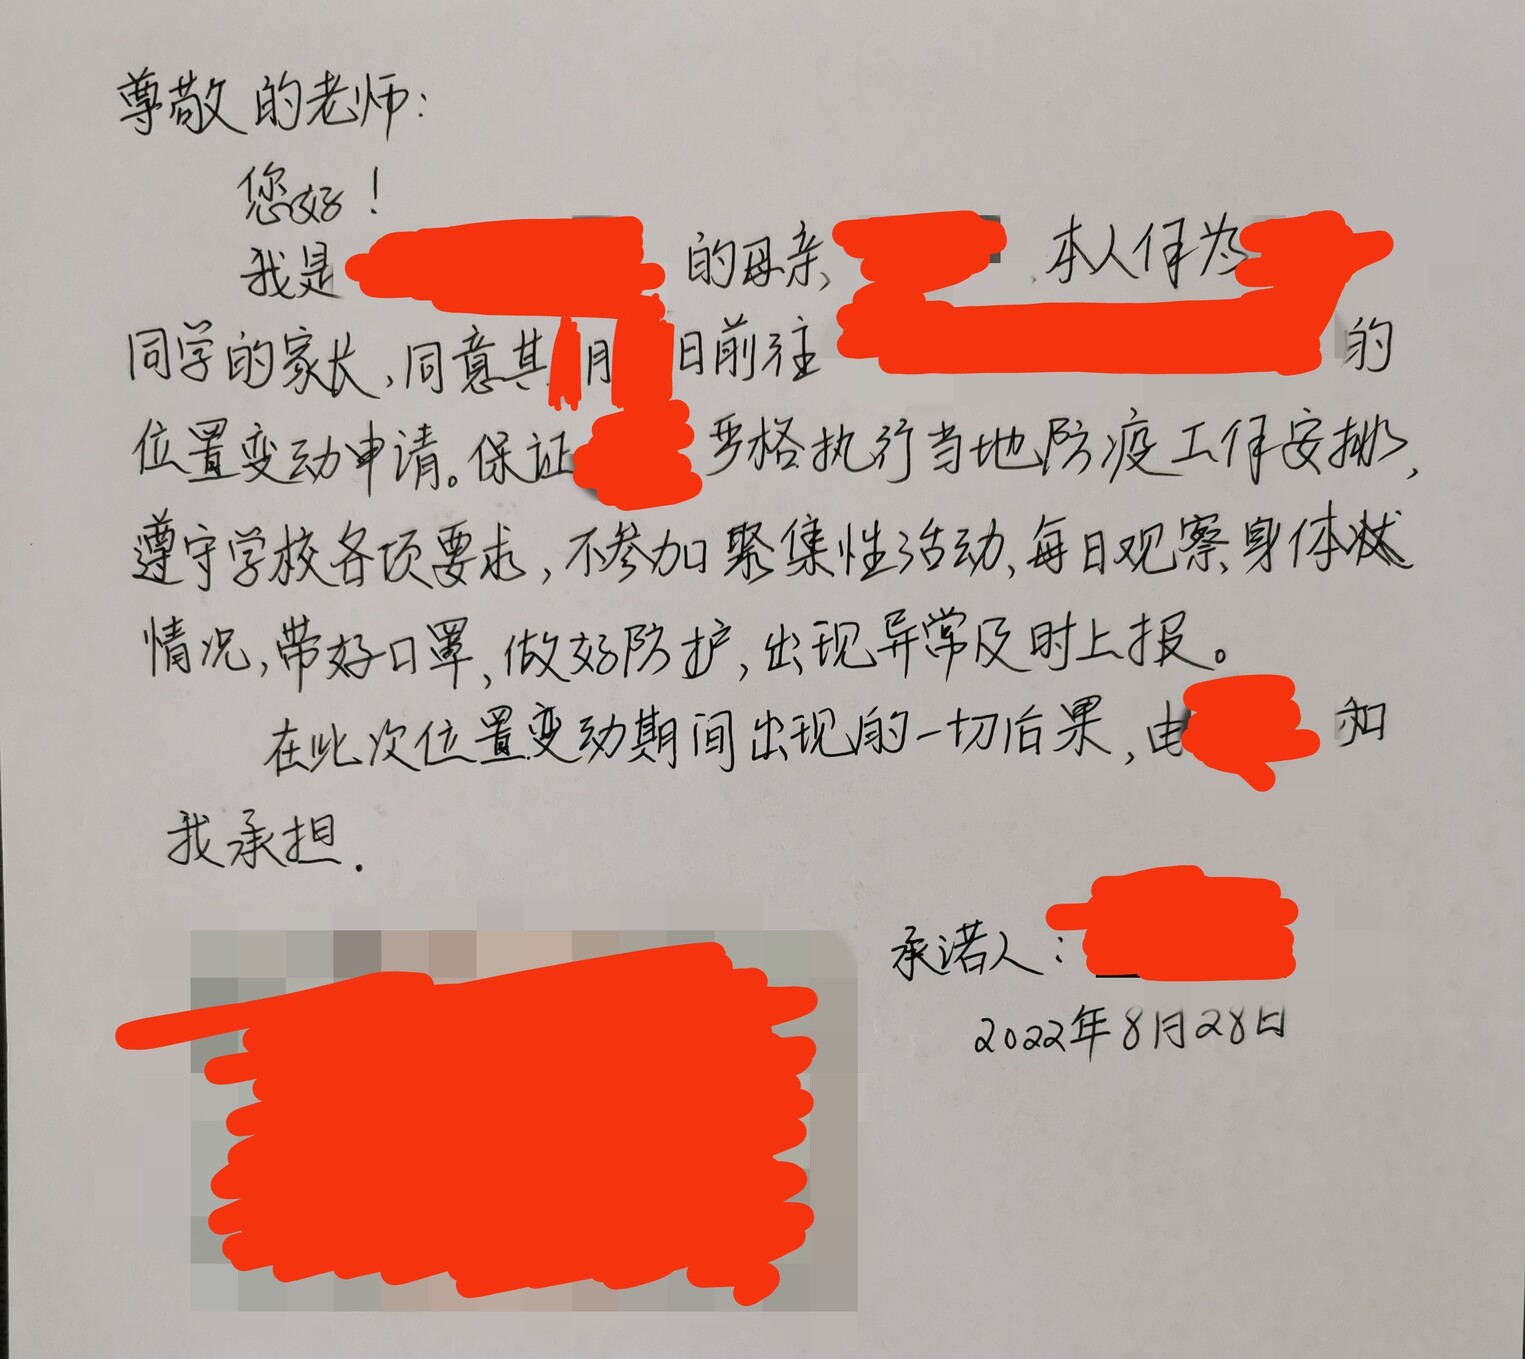 尊敬的老师:
您好！
我是 的母亲 , 本人作为
同学的家长,同意其 月 日前往 的
位置变动申请。保证 严格执行当地防疫工作安排,
遵守学校各项要求,不参加聚集性活动,每日观察身体状
情况,带好口罩,做好防护,出现异常及时上报。
在此次位置变动期间出现的一切后果,由 和
我承担.
承诺人:
2022年8月28日